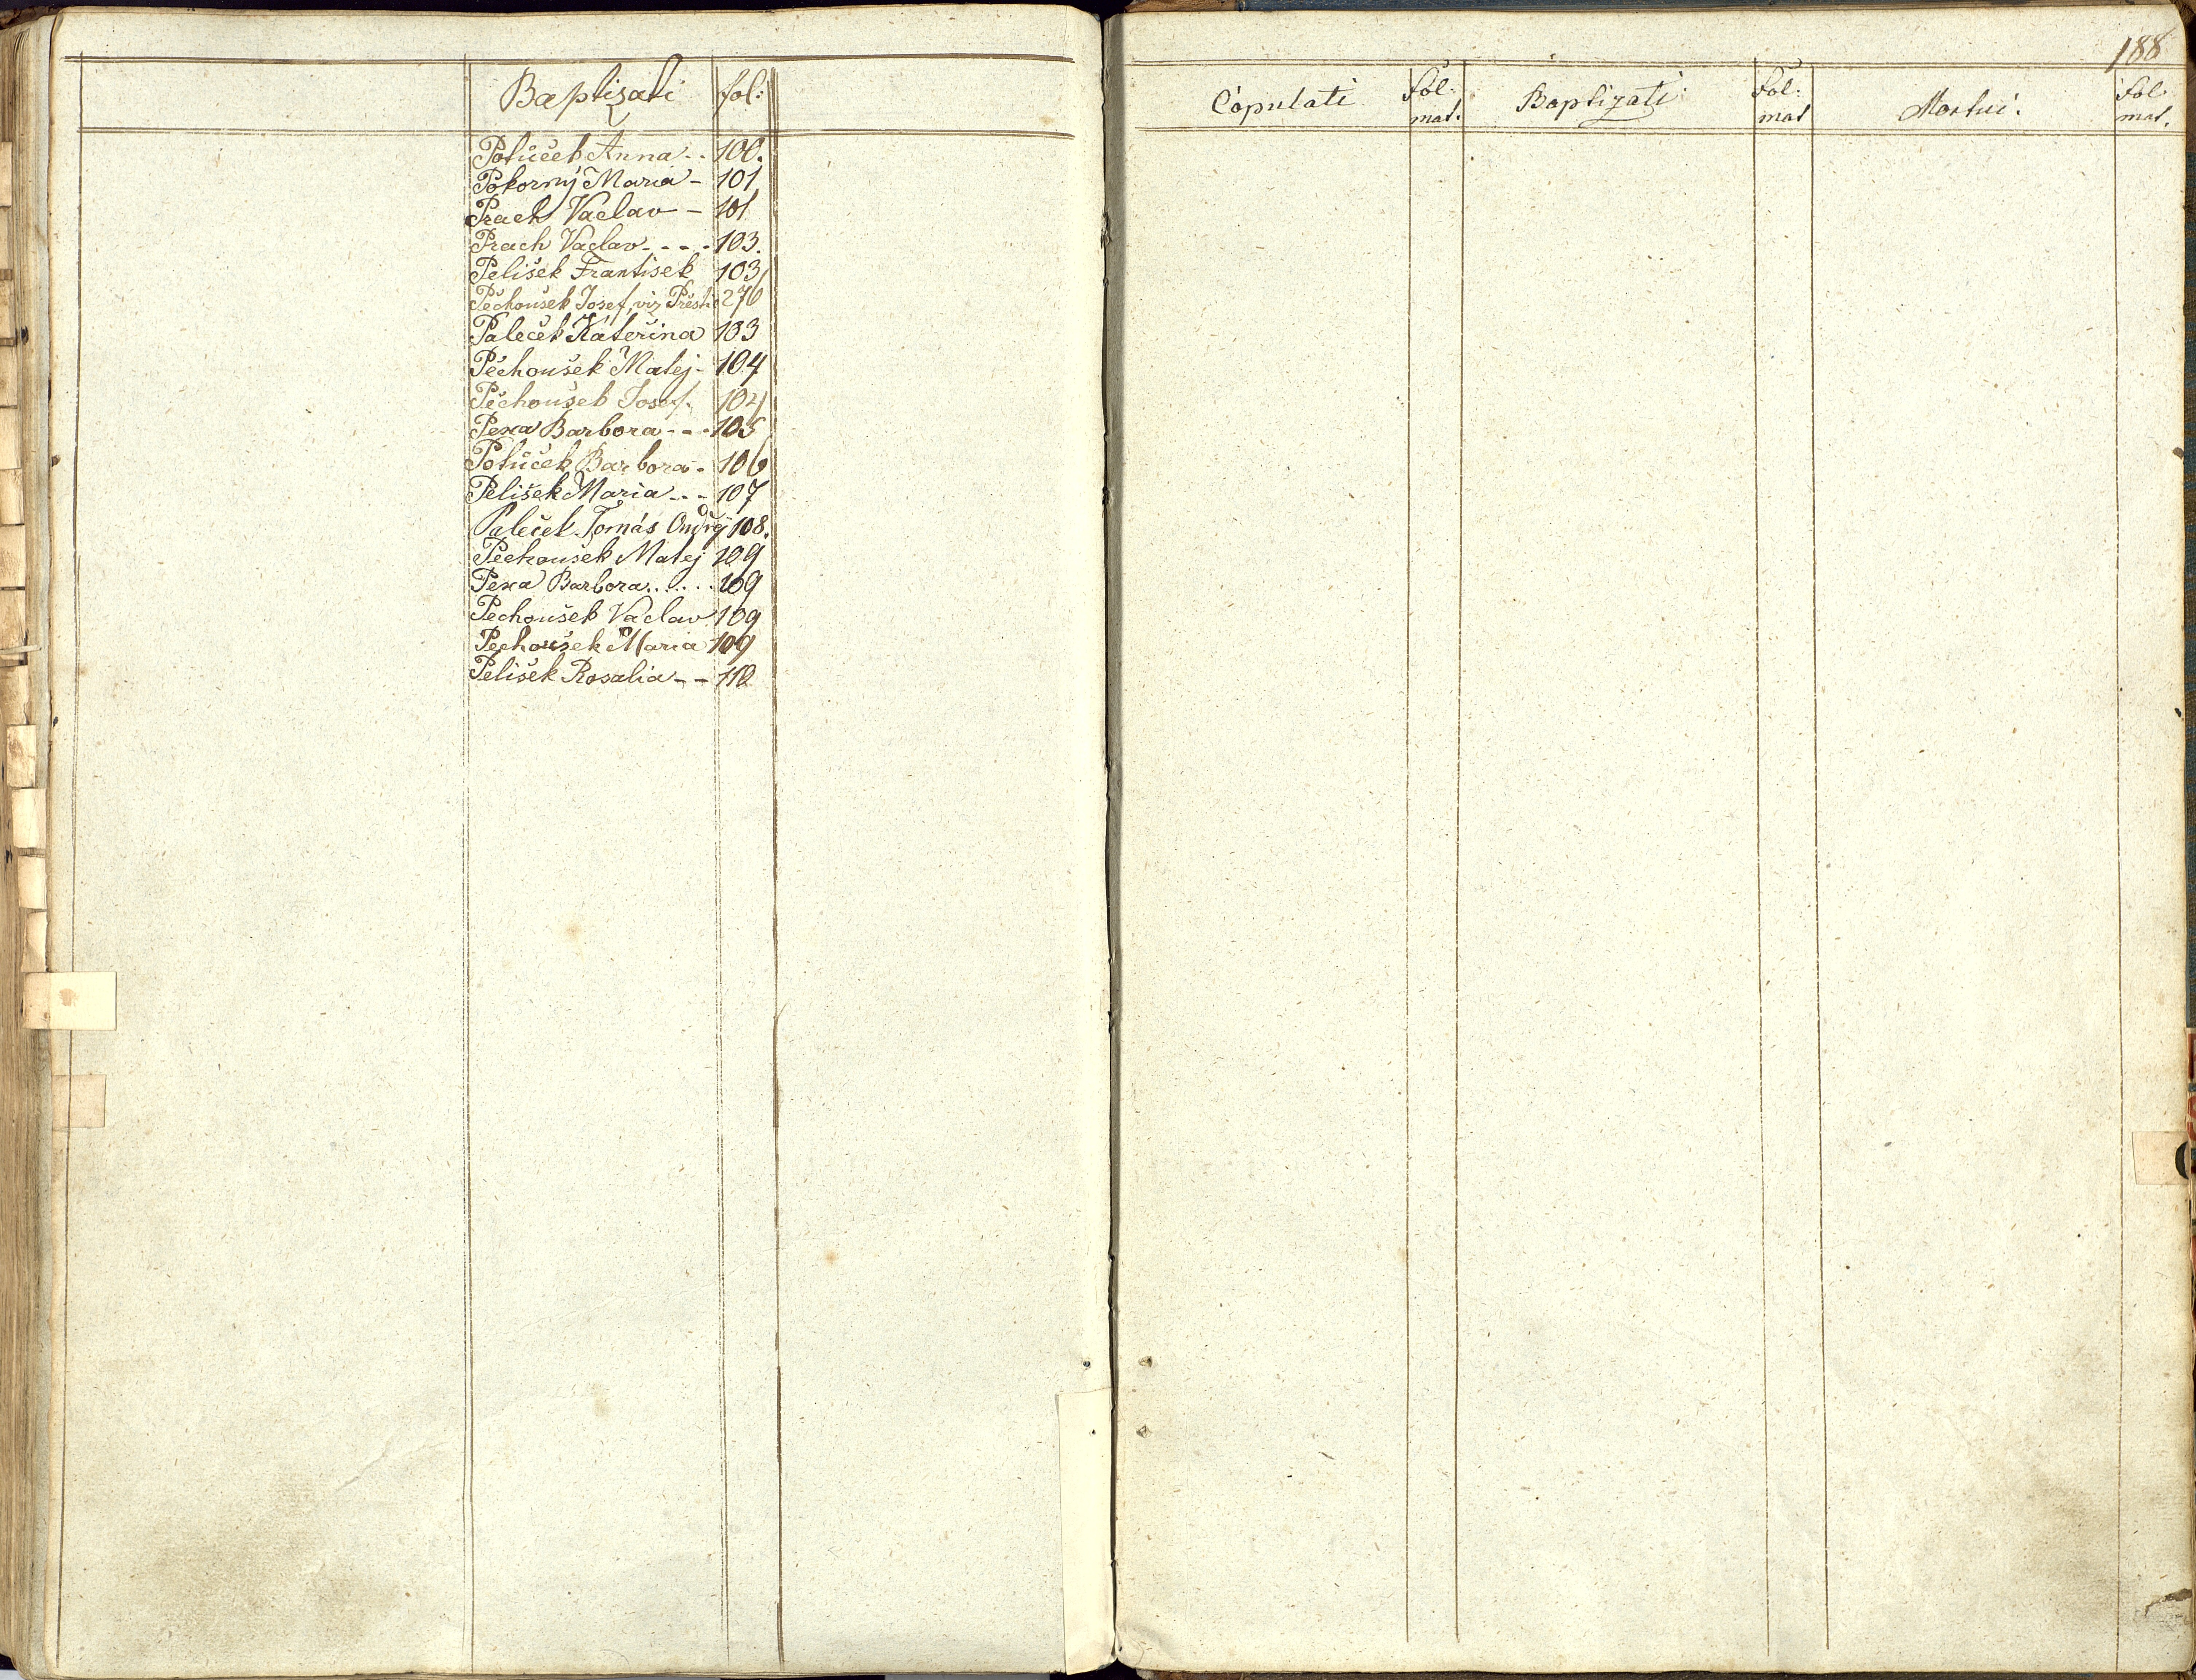 Baptizati fol:
Potůček Anna - - 100.
Pokorný Maria - 101
Prach Vaclav - 101
Prach Vaclav - - - - 103.
Pelišek František 103
Pěchoušek Josef, viz Přešti 276
Paleček Kateřina 103
Pěchoušek Matěj - 104
Pěchoušek Josef. 104
Pexa Barbora - - - 105
Potůček Barbora - 106
Pelišek Maria - - - 107
Paleček Tomáš Ondřej 108.
Pechoušek Matej 109
Pexa Barbora...... 109
Pechoušek Vaclav 109
Pechoušek Maria 109
Pelišek Rosalia - - 110
188
Copulati fol: mat. Baptizati fol: mat Mortui. fol mat.